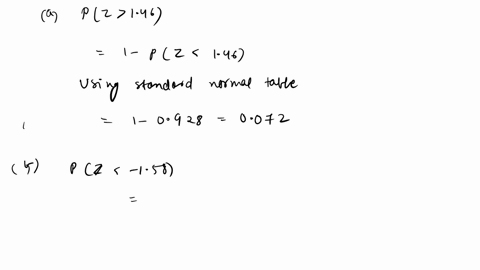 (a) P(Z > 1.46)
= 1 - P(Z < 1.46)
Using standard normal table
= 1 - 0.928 = 0.072
(b) P(Z < -1.58)
=